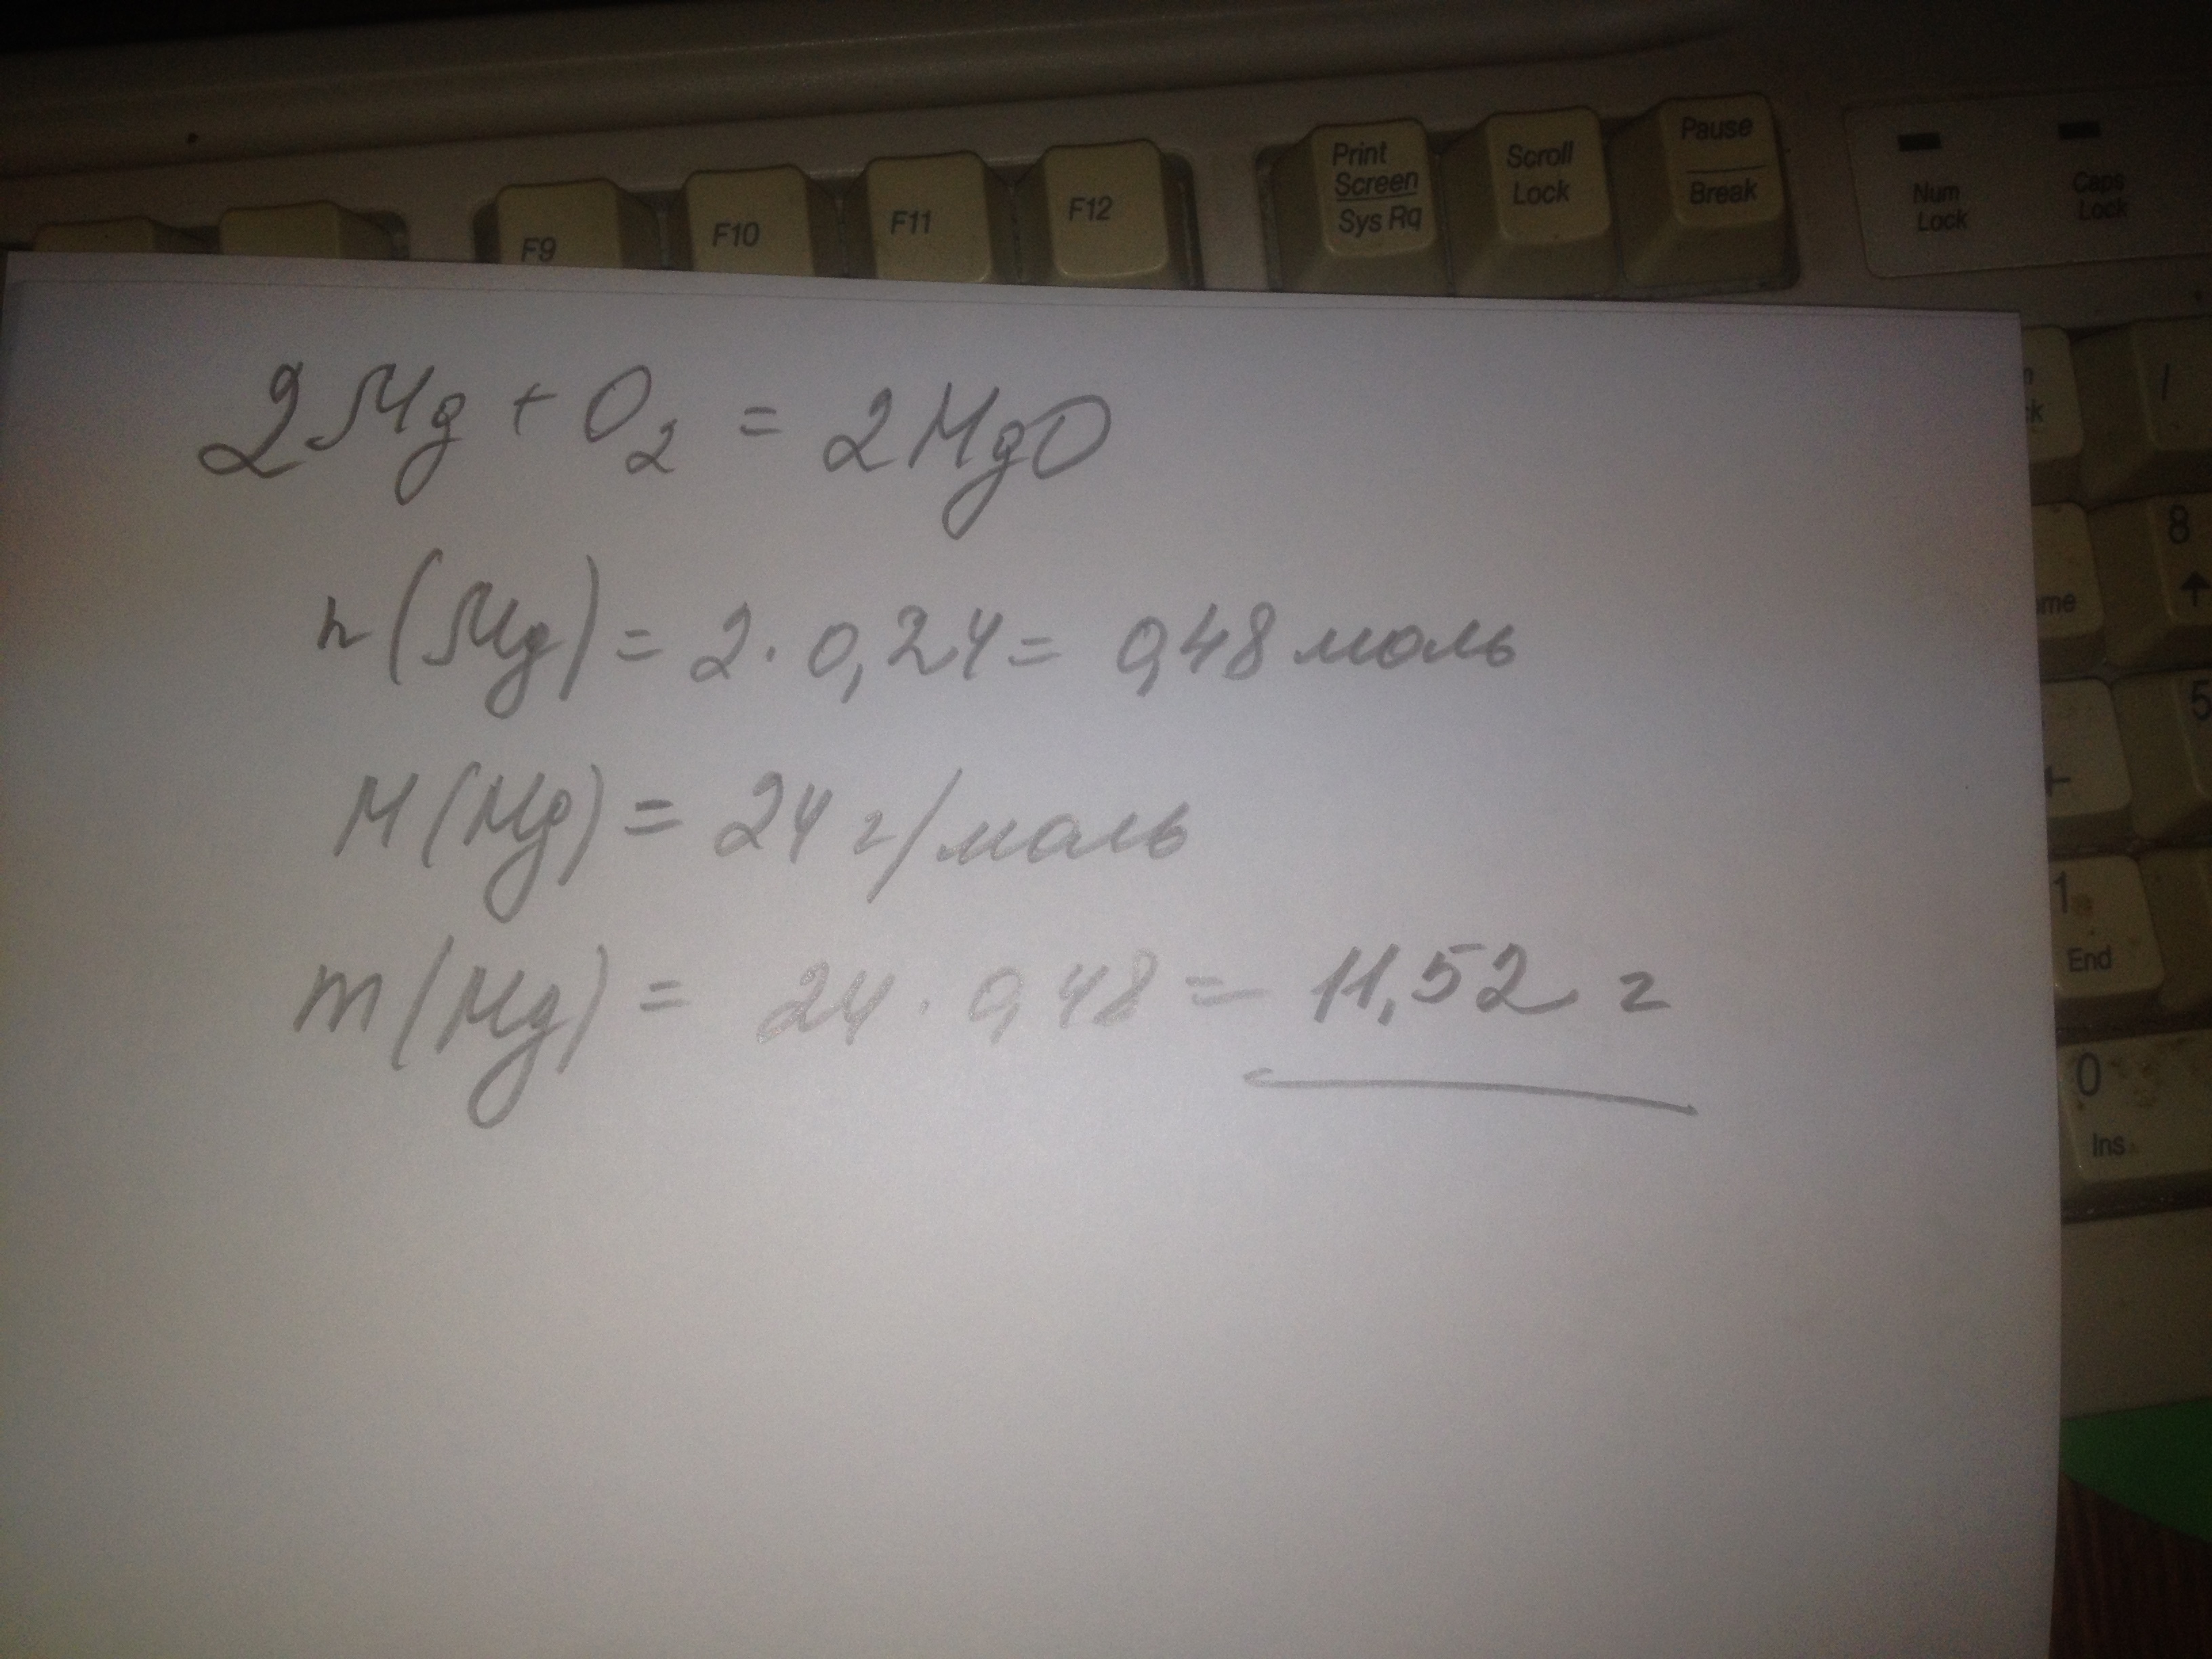 F9 F10 F11 F12 Print Screen Sys Rq Scroll Lock Pause Break Num Lock Caps Lock
/
2Mg + O₂ = 2MgO
8
n(Mg) = 2 · 0,24 = 0,48 моль
5
M(Mg) = 24 г/моль
1 End
m(Mg) = 24 · 0,48 = 11,52 г
0 Ins